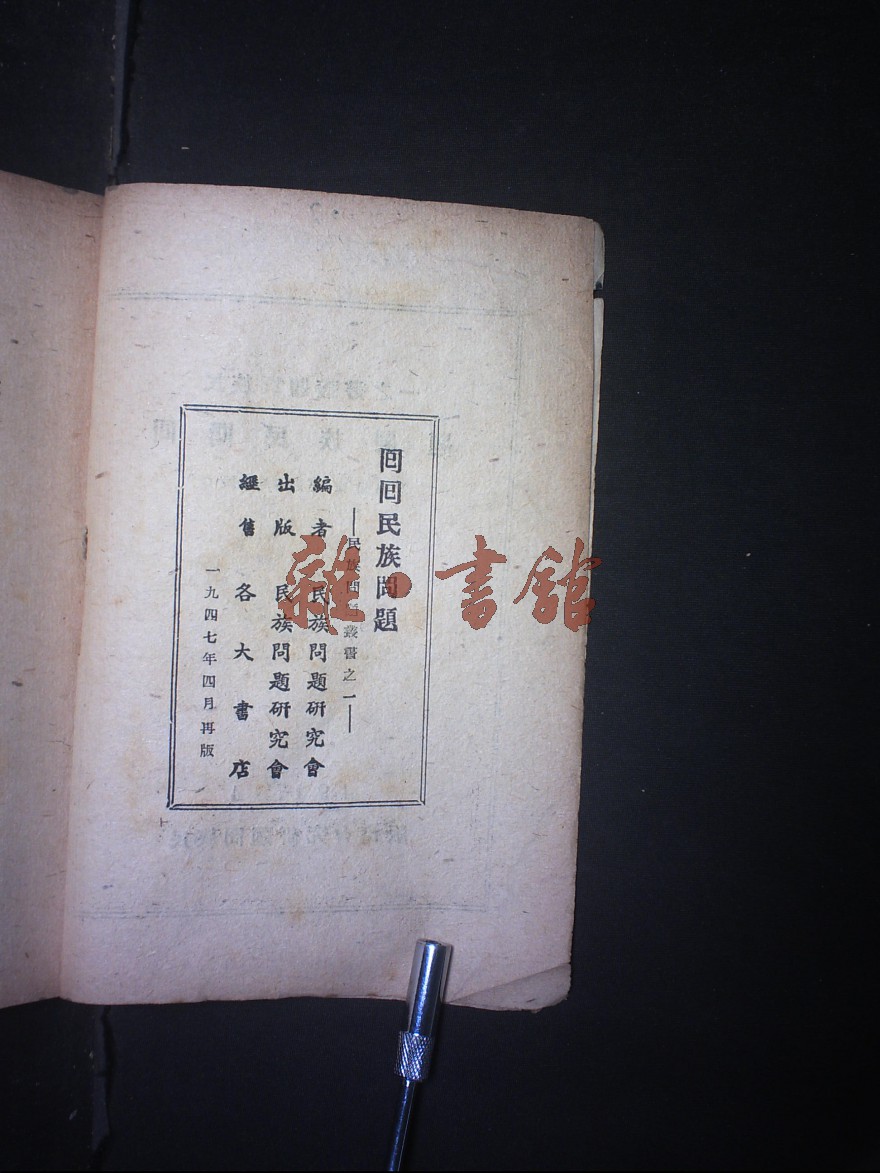 回回民族問題
——民族問題叢書之一——
編者 民族問題研究會
出版 民族問題研究會
經售 各大書店
一九四七年四月再版
雜·書館